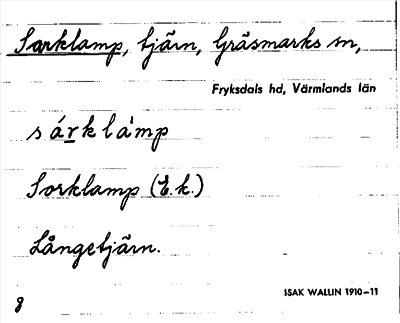 Sarklamp, tjärn, Gräsmarks sn,
Fryksdals hd, Värmlands län
sárklàmp
Sorklamp (E.k.)
Långetjärn.
ISAK WALLIN 1910-11
8